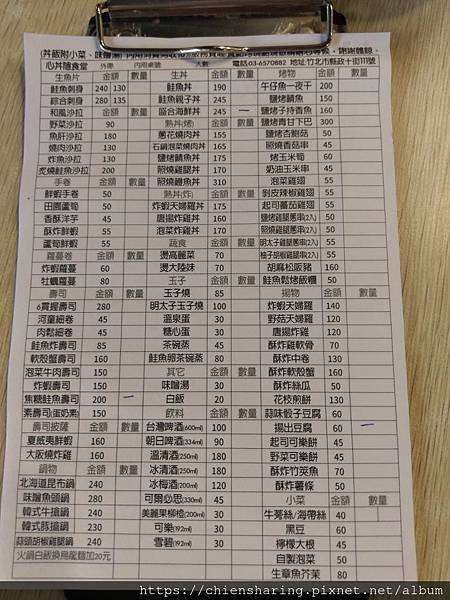 (丼飯附小菜、味噌湯)
心丼隨食堂 外帶 內用桌號 人數 電話03-6570882 地址:竹北市縣政十街111號
生魚片 金額 數量
鮭魚刺身 240 130
綜合刺身 280 135
和風沙拉 金額 數量
野菜沙拉 90
魚肝沙拉 180
燒肉沙拉 130
炸魚沙拉 130
炙燒鮭魚沙拉 200
手卷 金額 數量
鮮蝦手卷 50
田園蘆筍 50
香酥洋芋 45
酥炸鮮蝦 55
蘆筍鮮蝦 55
蘿蔓卷 金額 數量
炸蝦蘿蔓 60
牡蠣蘿蔓 80
壽司 金額 數量
6貫握壽司 280
河童細卷 45
肉鬆細卷 45
鮭魚炸壽司 85
軟殼蟹壽司 160
泡菜牛肉壽司 150
炸蝦壽司 150
焦糖鮭魚壽司 200
素壽司(蛋奶素) 150
壽司披薩 金額 數量
夏威夷鮮蝦 160
大阪燒炸雞 160
鍋物 金額 數量
北海道昆布鍋 240
味噌魚頭鍋 280
韓式牛搶鍋 240
韓式豚搶鍋 230
蒜頭胡椒雞腿鍋 240
火鍋白飯換烏龍麵加20元
生丼 金額 數量
鮭魚丼 190
鮭魚親子丼 245
盛合海鮮丼 245
熟丼(烤) 金額 數量
蔥花燒肉丼 155
石鍋泡菜燒肉丼 165
鹽烤鯖魚丼 175
照燒雞腿丼 170
照燒鰻魚丼 310
熟丼(炸) 金額 數量
炸蝦天婦羅丼 175
唐揚炸雞丼 160
泡菜炸雞丼 165
蔬食 金額 數量
燙高麗菜 70
燙大陸妹 70
玉子 金額 數量
玉子燒 85
明太子玉子燒 100
溫泉蛋 30
糖心蛋 30
茶碗蒸 45
鮭魚卵茶碗蒸 80
其它 金額 數量
味噌湯 30
白飯 20
飲料 金額 數量
台灣啤酒(600ml) 100
朝日啤酒(334ml) 90
溫清酒(250ml) 180
冰清酒(250ml) 180
冰梅酒(200ml) 120
可爾必思(330ml) 45
美麗果柳橙(200ml) 30
可樂(192ml) 30
雪碧(192ml) 30
烤物 金額 數量
午仔魚一夜干 200
鹽烤鯖魚 150
鹽烤子持香魚 160
鹽烤青甘下巴 300
鹽烤杏鮑菇 50
照燒香菇串 45
烤玉米筍 60
奶油玉米串 45
泡菜雞翅 55
剝皮辣椒雞翅 55
起司蕃茄雞翅 55
鹽烤雞腿蔥串(2入) 50
照燒雞腿蔥串(2入) 50
明太子雞腿蔥串(2入) 55
柚子胡椒雞腿串(2入) 55
胡麻松阪豬 160
鮭魚鬆烤飯糰 50
揚物 金額 數量
炸蝦天婦羅 140
野菇天婦羅 120
唐揚炸雞 120
酥炸雞軟骨 70
酥炸中卷 130
酥炸軟殼蟹 160
酥炸絲瓜 50
花枝煎餅 130
蒜味骰子豆腐 60
揚出豆腐 60
起司可樂餅 45
野菜可樂餅 45
酥炸竹莢魚 70
酥炸薯條 50
小菜 金額 數量
牛蒡絲/海帶絲 40
黑豆 60
檸檬大根 45
自製泡菜 50
生章魚芥末 80
https://chiensharing.pixnet.net/album